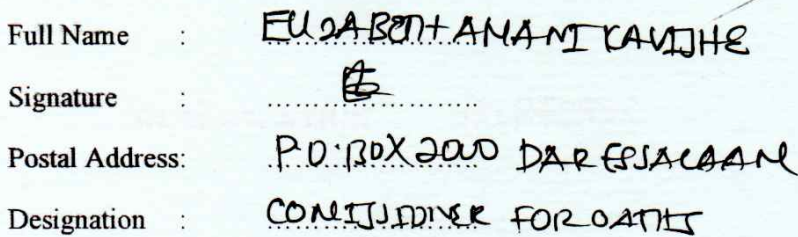 Full Name : ELIZABETH AMANI KAVISHE
Signature :
Postal Address: P.O.BOX 2000 DAR ES SALAAM
Designation : COMMISSIONER FOR OATHS